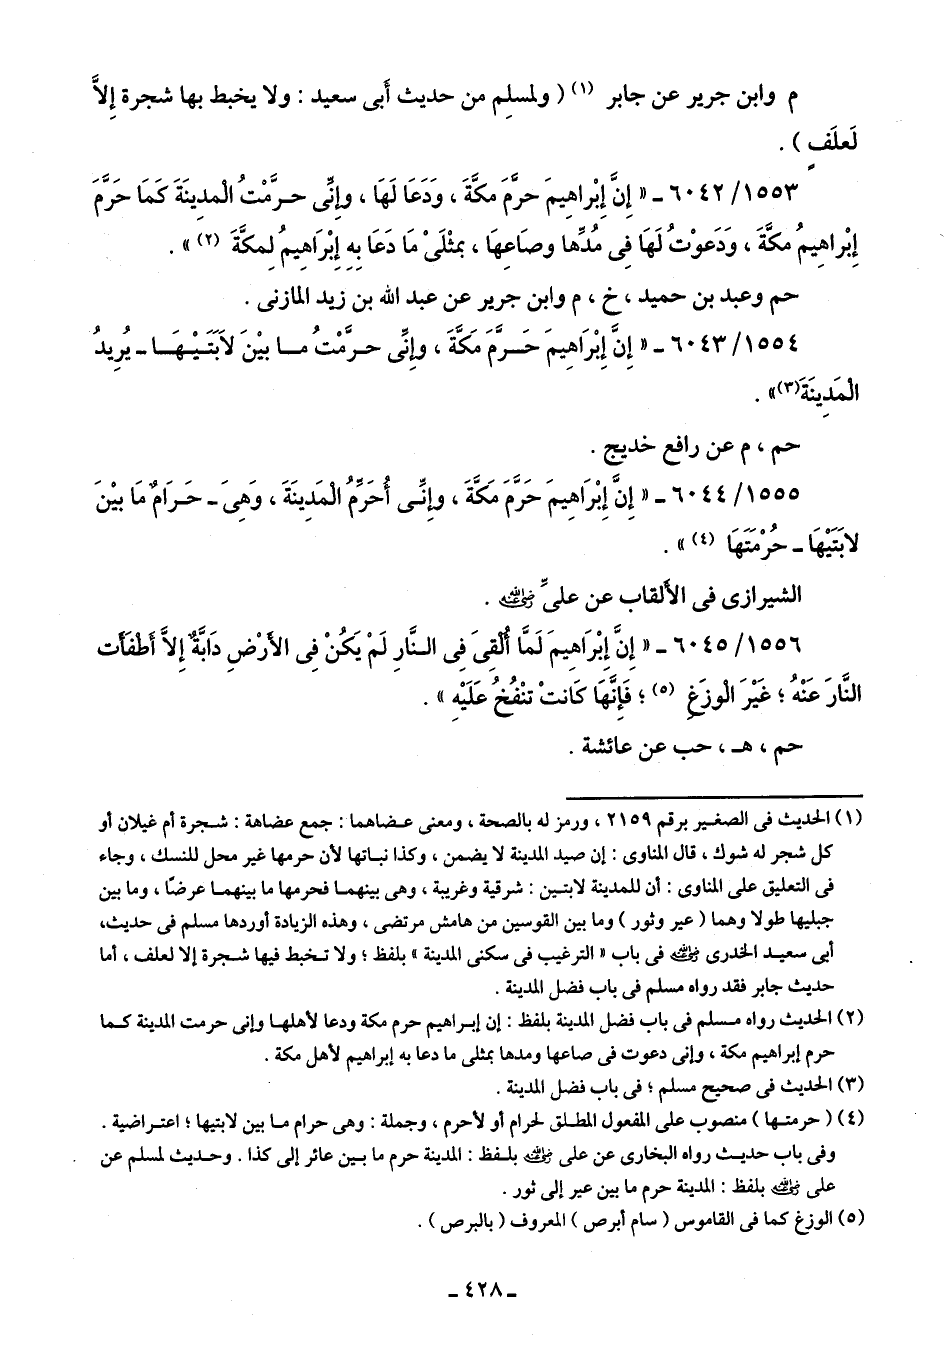 م وابن جرير عن جابر (١) ( ولمسلِم من حديث أبى سعيد : ولا يخبط بها شجرة إلاَّ
لَعلَفٍ ) .
٦٠٤٢/١٥٥٣ ـ « إنَّ إبْرَاهِيمَ حرَّمَ مكَّةَ ، وَدَعَا لَهَا ، وإنِّى حرَّمْتُ الْمدِينَةَ كَمَا حَرَّمَ
إبْرَاهِيمُ مكَّةَ ، ودَعوْتُ لَهَا فِى مُدِّها وصَاعِهَا ، بمثْلَىْ مَا دَعَا بِهِ إبْرَاهِيمُ لِمكَّةَ (٢) » .
حم وعبد بن حميد ، خ ، م وابن جرير عن عبد الله بن زيد المازنى .
٦٠٤٣/١٥٥٤ ـ « إنَّ إبْرَاهِيمَ حَرَّمَ مَكَّةَ ، وإنِّى حرَّمْتُ ما بيْنَ لاَبَتَيْهَا ـ يُرِيدُ
الْمَدِينَةَ(٣)» .
حم ، م عن رافع خديج .
٦٠٤٤/١٥٥٥ ـ « إنَّ إبْرَاهِيمَ حَرَّمَ مَكَّةَ ، وإنِّى أُحَرِّمُ الْمَدِينَةَ ، وَهِىَ ـ حَرَامٌ مَا بيْنَ
لابَتَيْهَا ـ حُرْمَتَهَا (٤) » .
الشيرازى فى الألقاب عن علىٍّ رضي الله عنه .
٦٠٤٥/١٥٥٦ ـ « إنَّ إبْرَاهِيمَ لَمَّا أُلْقِىَ فِى النَّارِ لَمْ يَكُنْ فِى الأَرْضِ دَابَّةٌ إلاَّ أطْفَأت
النَّارَ عَنْهُ ؛ غَيْرَ الْوزَغِ (٥) ؛ فَإنَّهَا كَانتْ تنْفُخُ عَلَيْهِ » .
حم ، هـ ، حب عن عائشة .
(١) الحديث فى الصغير برقم ٢١٥٩ ، ورمز له بالصحة ، ومعنى عضاهما : جمع عضاهة : شجرة أم غيلان أو
كل شجر له شوك ، قال المناوى : إن صيد المدينة لا يضمن ، وكذا نباتها لأن حرمها غير محل للنسك ، وجاء
فى التعليق على المناوى : أن للمدينة لابتين : شرقية وغريبة ، وهى بينهما فحرمها ما بينهما عرضًا ، وما بين
جبليها طولا وهما ( عير وثور ) وما بين القوسين من هامش مرتضى ، وهذه الزيادة أوردها مسلم فى حديث،
أبى سعيد الخدرى رضي الله عنه فى باب « الترغيب فى سكنى المدينة » بلفظ ؛ ولا تخبط فيها شجرة إلا لعلف ، أما
حديث جابر فقد رواه مسلم فى باب فضل المدينة .
(٢) الحديث رواه مسلم فى باب فضل المدينة بلفظ : إن إبراهيم حرم مكة ودعا لأهلها وإنى حرمت المدينة كما
حرم إبراهيم مكة ، وإنى دعوت فى صاعها ومدها بمثلى ما دعا به إبراهيم لأهل مكة .
(٣) الحديث فى صحيح مسلم ؛ فى باب فضل المدينة .
(٤) ( حرمتها ) منصوب على المفعول المطلق لحرام أو لأحرم ، وجملة : وهى حرام ما بين لابتيها ؛ اعتراضية .
وفى باب حديث رواه البخارى عن على رضي الله عنه بلفظ : المدينة حرم ما بين عائر إلى كذا . وحديث لمسلم عن
على رضي الله عنه بلفظ : المدينة حرم ما بين عير إلى ثور .
(٥) الوزغ كما فى القاموس ( سام أبرص ) المعروف ( بالبرص ) .
ـ ٤٢٨ ـ